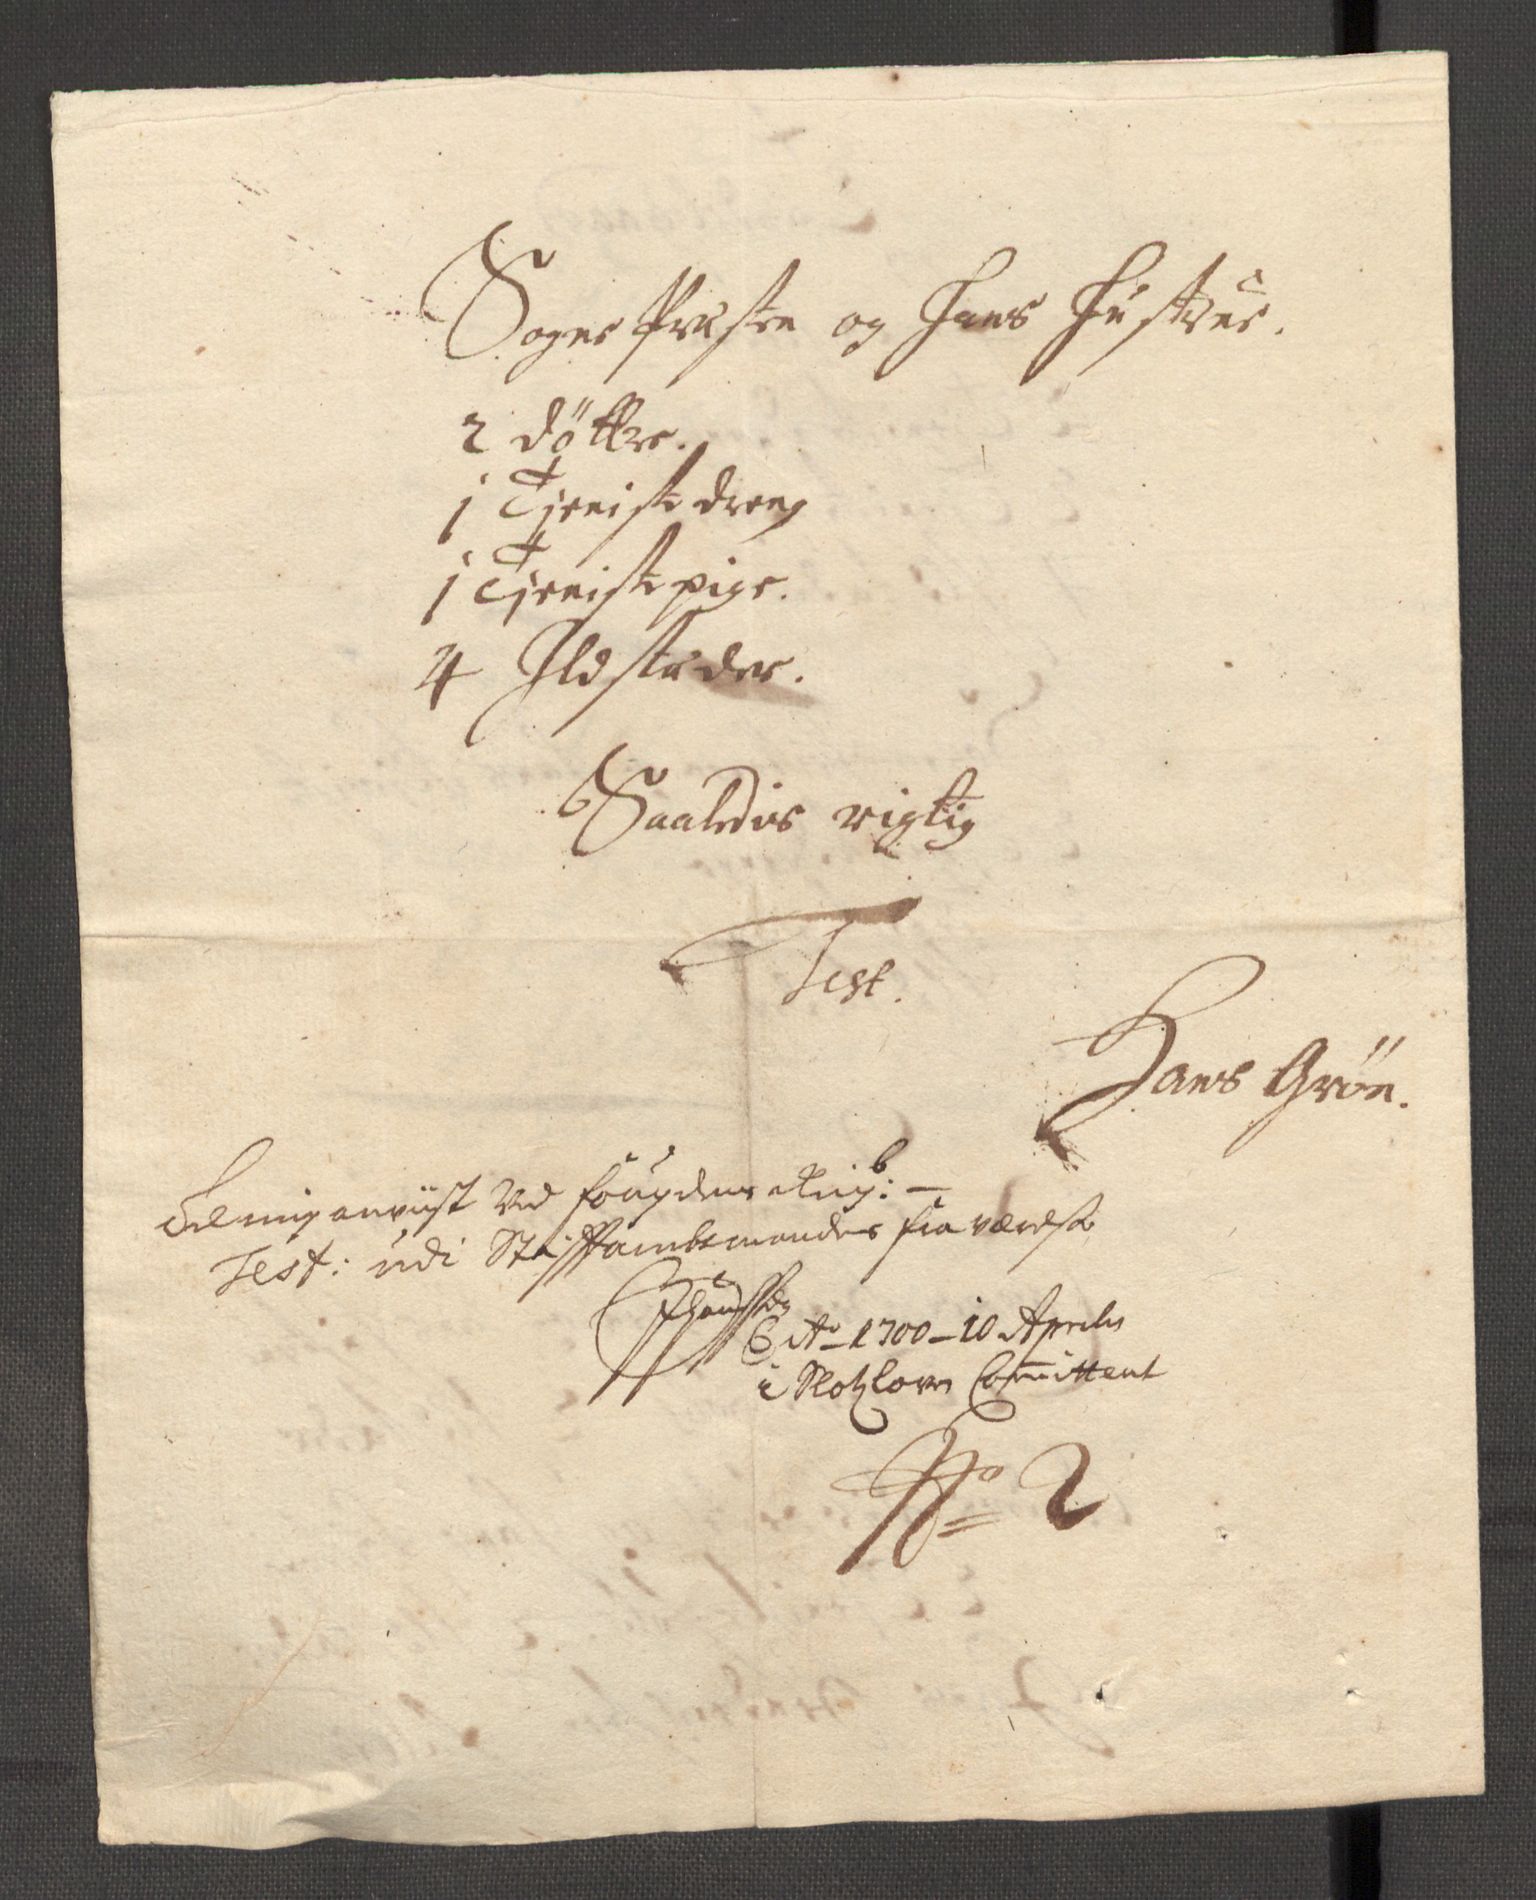 Sogne Præsten og Hans Hustrue.
2 döttre.
1 Tjeniste dreng
1 Tjeniste pige.
4 Ildstæder.
Saaledis rigtig
Test.
Hans Grön.
mig anviist ved fougden
Test: udi Stifftambtmandens fraværelse
Ao 1700 - 10 Aprilis
i Slotzlovn Committent
No 2